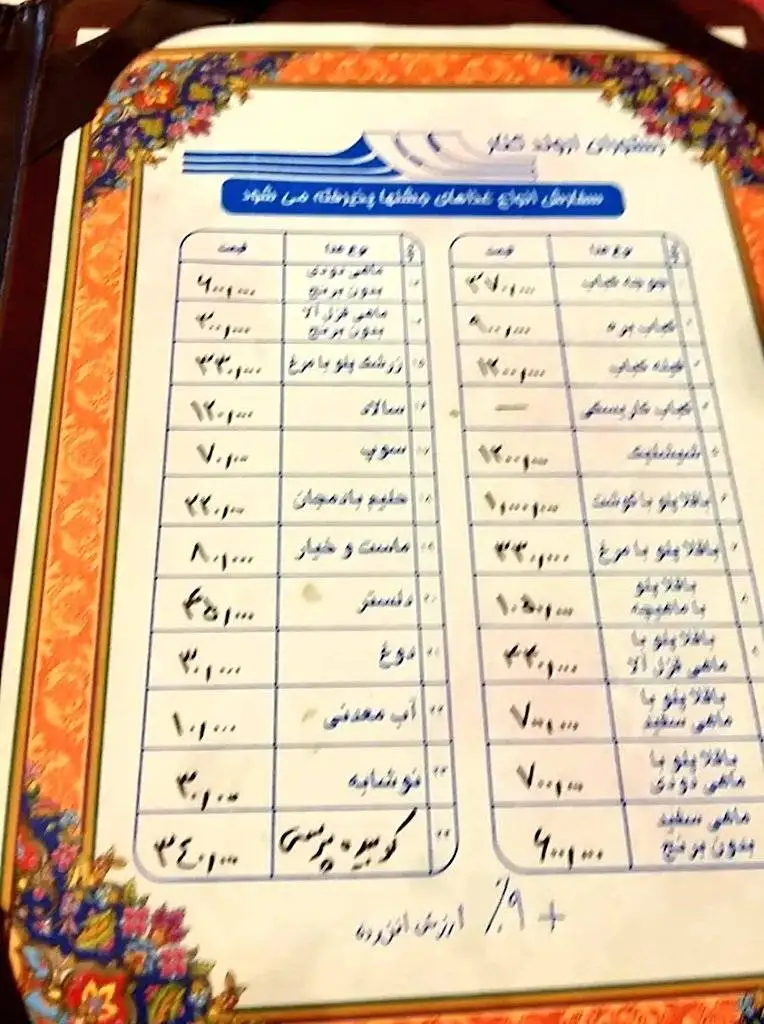 رستوران اروند کنار
سفارش انواع غذاهای جشنها پذیرفته می شود
نوع غذا قیمت
جوجه کباب ۳۷۰,۰۰۰
کباب بره ۹۰۰,۰۰۰
کباب ۱۲۰۰,۰۰۰
کباب —
شیشلیک ۱۲۰۰,۰۰۰
باقلا پلو با گوشت ۱,۰۰۰,۰۰۰
باقلا پلو با مرغ ۳۳۰,۰۰۰
باقلا پلو
با ماهیچه ۱۰۵۰,۰۰۰
باقلا پلو با
ماهی قزل آلا ۴۴۰,۰۰۰
باقلا پلو با
ماهی سفید ۷۰۰,۰۰۰
باقلا پلو با
ماهی دودی ۷۰۰,۰۰۰
ماهی سفید
بدون برنج ۶۰۰,۰۰۰
نوع غذا قیمت
ماهی دودی
بدون برنج ۶۰۰,۰۰۰
ماهی قزل آلا
بدون برنج ۳۰۰,۰۰۰
زرشک پلو با مرغ ۳۳۰,۰۰۰
سالاد ۱۲۰,۰۰۰
سوپ ۷۰,۰۰۰
حلیم بادمجان ۲۲۰,۰۰۰
ماست و خیار ۸۰,۰۰۰
دلستر ۴۵,۰۰۰
دوغ ۳۰,۰۰۰
آب معدنی ۱۰,۰۰۰
نوشابه ۳۰,۰۰۰
کوبیده پرسی ۳٤۰,۰۰۰
+ ۹٪ ارزش افزوده